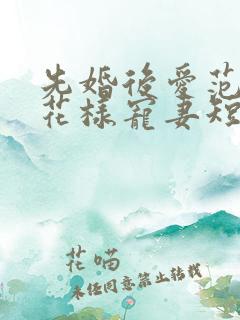 先婚後愛范
花樣寵妻短
花喵
未经同意禁止转载